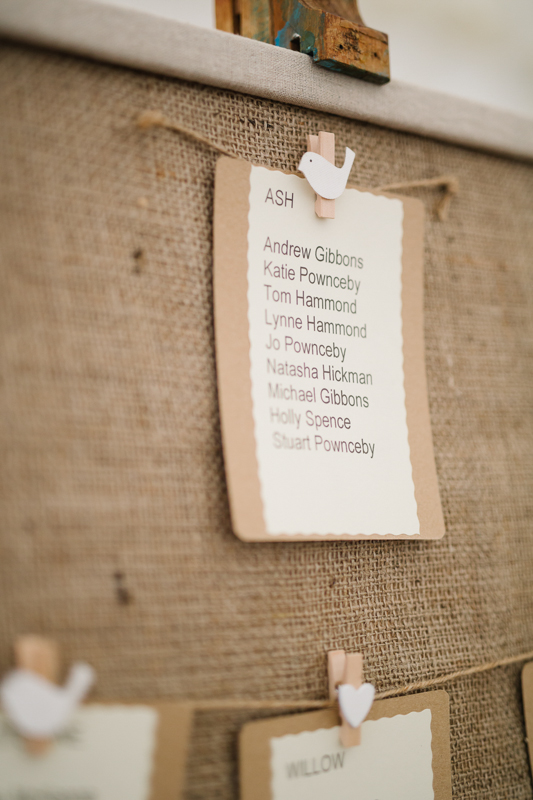 ASH
Andrew Gibbons
Katie Pownceby
Tom Hammond
Lynne Hammond
Jo Pownceby
Natasha Hickman
Michael Gibbons
Holly Spence
Stuart Pownceby
WILLOW